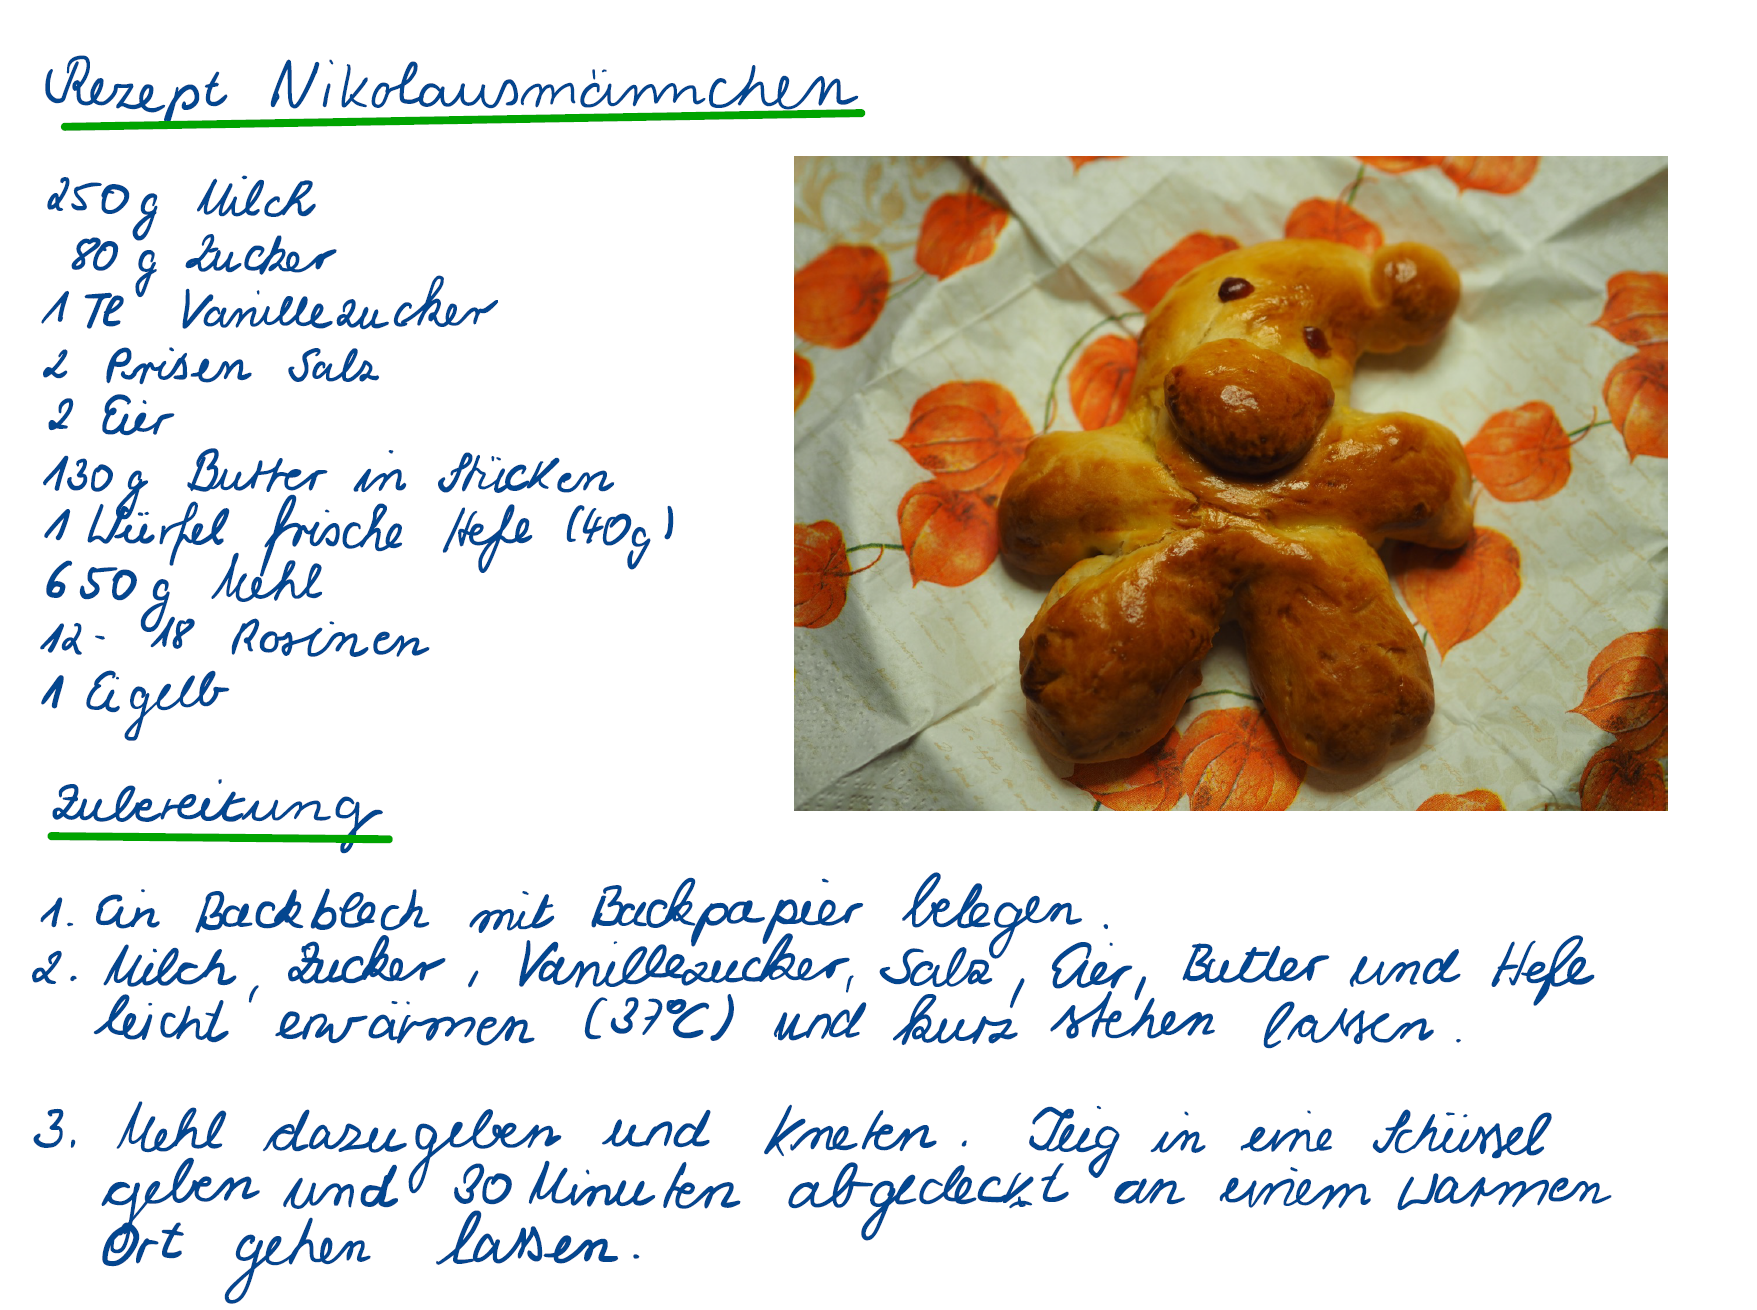 Rezept Nikolausmännchen
250 g Milch
80 g Zucker
1 Tl Vanillezucker
2 Prisen Salz
2 Eier
130 g Butter in Stücken
1 Würfel frische Hefe (40g)
650 g Mehl
12 - 18 Rosinen
1 Eigelb
Zubereitung
1. Ein Backblech mit Backpapier belegen.
2. Milch, Zucker, Vanillezucker, Salz, Eier, Butter und Hefe
leicht erwärmen (37°C) und kurz stehen lassen.
3. Mehl dazugeben und kneten. Teig in eine Schüssel
geben und 30 Minuten abgedeckt an einem warmen
Ort gehen lassen.